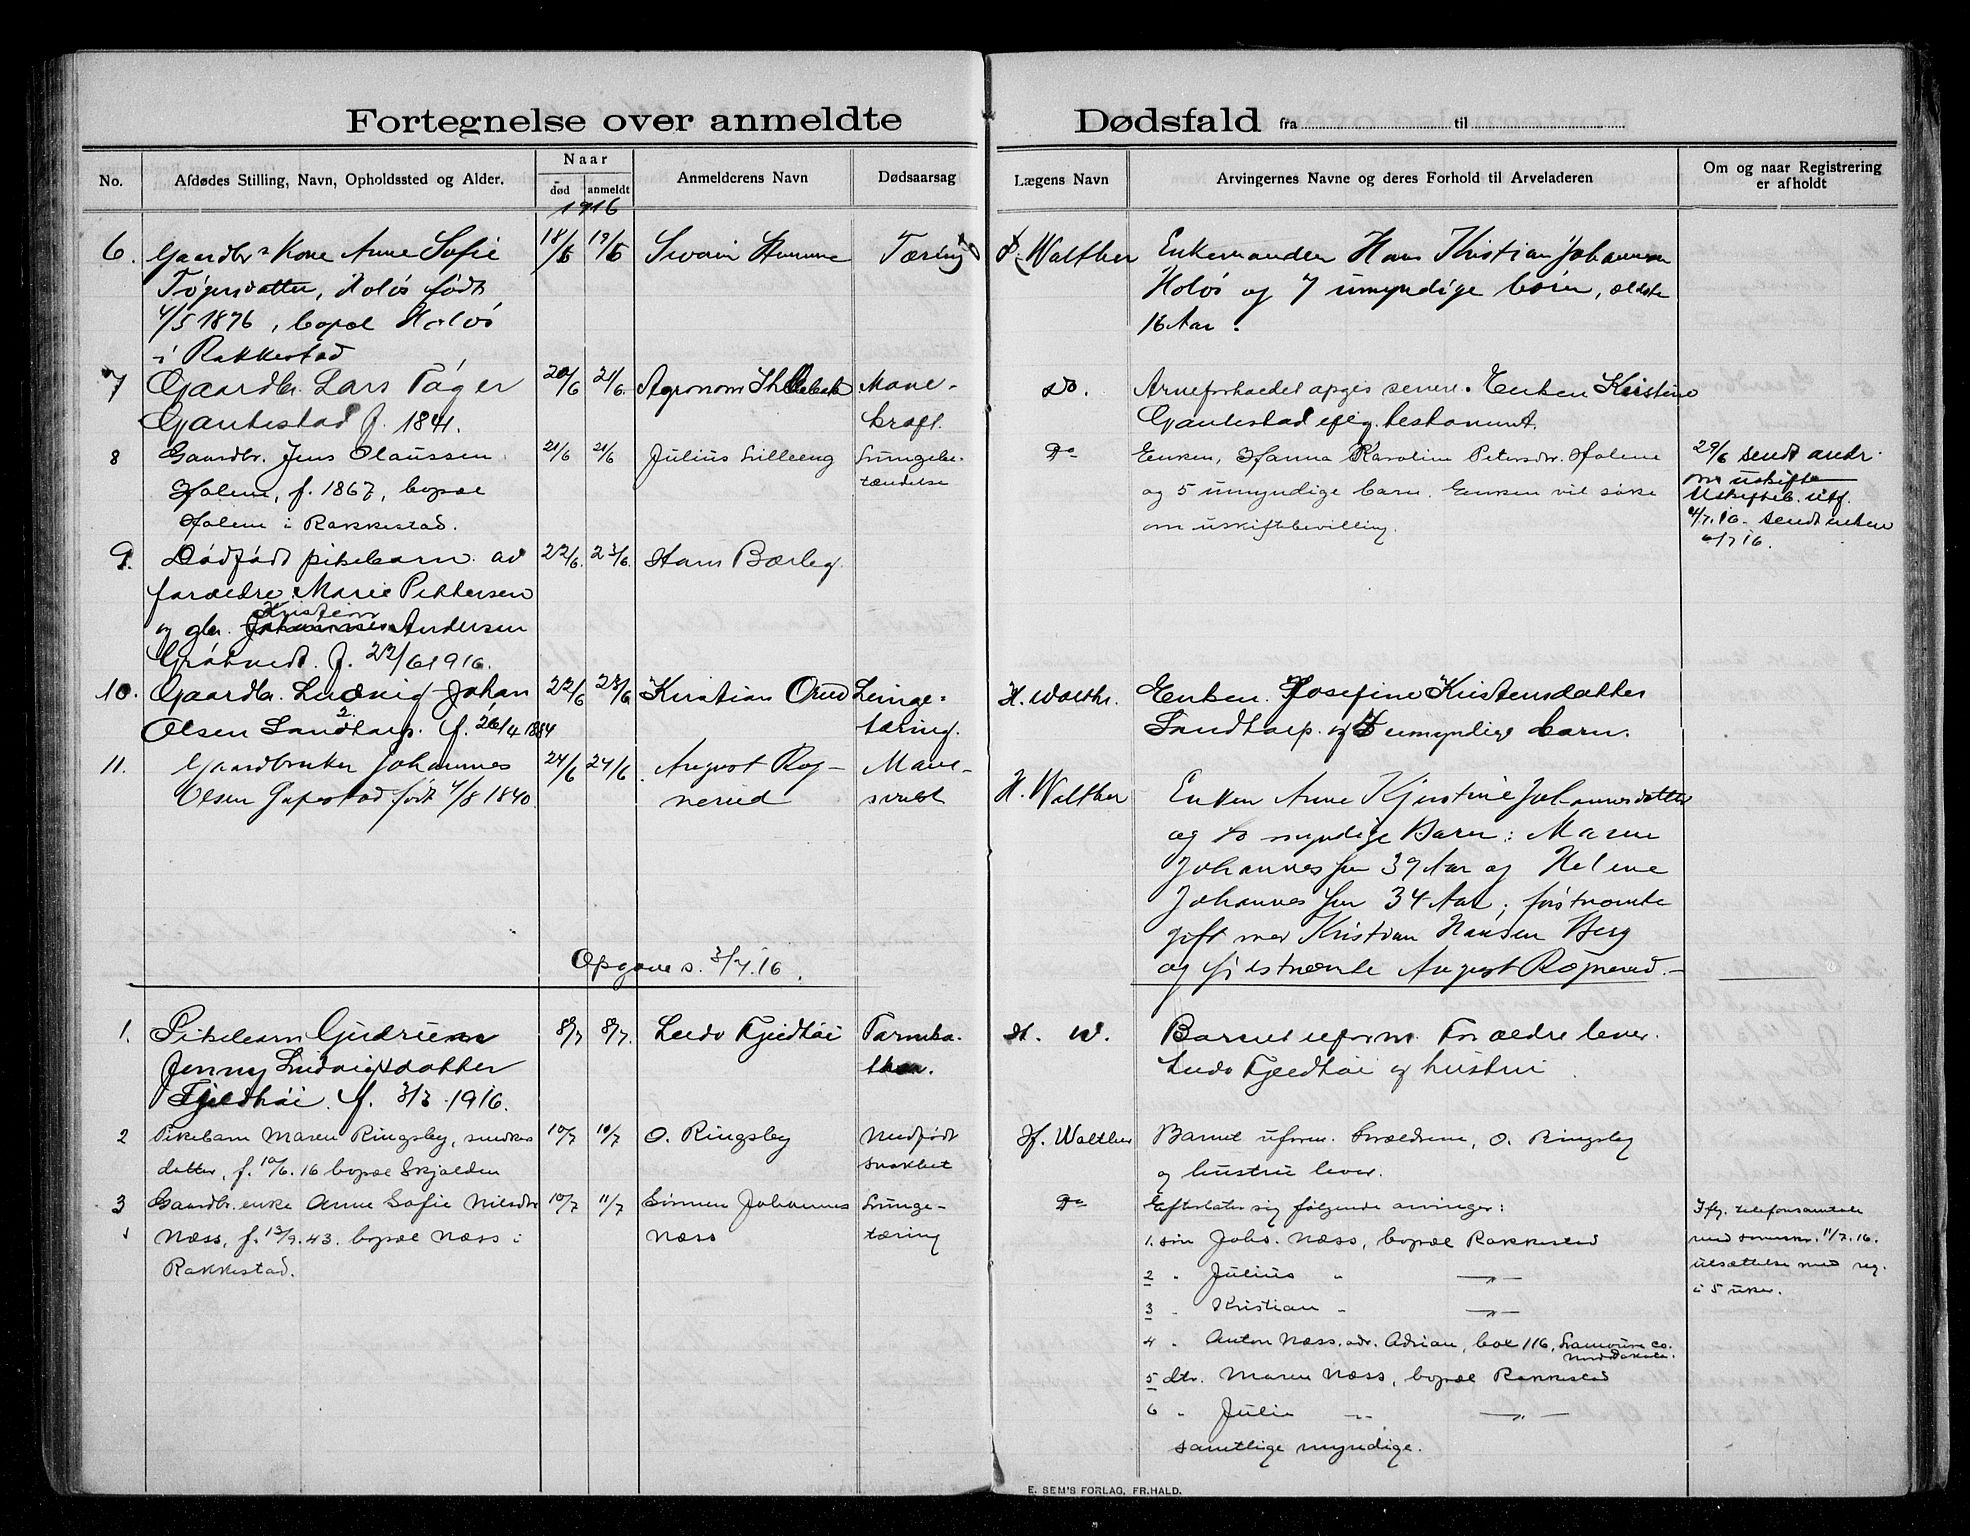 Fortegnelse over anmeldte Dødsfald fra til
No.
Afdødes Stilling, Navn, Opholdssted og Alder.
Naar
død anmeldt
1916
Anmelderens Navn
Dødsaarsag
Lægens Navn
Arvingernes Navne og deres Forhold til Arveladeren
Om og naar Registrering
er afholdt
6. Gaardbrs Kone Anne Sofie 18/6 19/6 Tæring Walther Enkemanden Hans Kristian Johannsen
Holøs født Holøs og 7 umyndige børn, ældste
4/5 1876, bopæl Holøs 16 Aar.
i Rakkestad
7 Gaardbr. Lars Tøger 20/6 21/6. Agronom Mave- Do. Enken Kristine
f. 1841. kræft.
8 Gaardbr. Jens Olaussen 21/6 21/6 Julius Lilleeng Lungebe- Do Enken, Hanna Karoline Petersdr. Holene 29/6 sendt andr.
Holene, f. 1867, bopæl tændelse og 5 umyndige barn. Enken vil søke om uskifte
Holene i Rakkestad. om uskiftebevilling. Uskifteb. utf.
4/7.16. sendt enken
6/7 16.
9. Dødfødt pikebarn av 22/6. 23/6. Hans Bærby
foraeldre Marie Pettersen
Kristian
og gbr. Andersen
f. 22/6 1916.
10. Gaardbr. Ludvig Johan 22/6 Kristian Orud Lunge- H. Walthr. Enken Josefine Kristensdatter
Olsen Sandtorp. f. 26/4 1884 tæring. Sandtorp. og umyndige barn.
11. Gaardbruker Johannes 24/6 24/6 August Røg- Mave- H. Walther Enken Anne Kjirstine Johannesdatter
Olsen født 4/8 1840 nerud svulst og to myndige Barn: Maren
Johannesen 39 Aar og Helene
Johannesen 34 Aar, førstnevnte
gift med Kristian Hansen Berg
og sistnævnte August Røgnerud.
Opgave s. 3/7.16.
1. Pikebarn Gudrun 8/7 8/7. Ludv Fjeldhøi Tarmka- H. W. Barnet uform. Forældre lever.
Jenny Ludvigsdatter tharr. Ludv Fjeldhøi og hustru.
Fjeldhøi. f. 1916.
2 Pikebarn Maren Ringsby, 10/7 10/7 O. Ringsby Medfødt H. Walther Barnet uform. Foreldrene, O. Ringsby
datter, f. 10/6.16 bopæl Skjolden svakhet og hustru lever.
3 Gaardbr. enke Anne Sofie Nilsdtr 10/7 11/7 Sønnen Johannes Lunge- Do Efterlater sig følgende arvinger: Iflg. telefonsamtale
Næss, f. 13/9.43. bopæl Næss i Næss tæring 1. søn Johs. Næss, bopæl Rakkestad med 11/7.16.
Rakkestad. 2 " Julius " — " — utsættelse med reg.
3 " Kristian " — " — i 5 uker.
4 " Anton Næss. adr. Adrian, box 116, Lamoure Co.
Nord Dakota.
5 dtr. Maren Næss, bopæl Rakkestad
6 " Julie " — " —
samtlige myndige.
E. SEM'S FORLAG, FR.HALD.